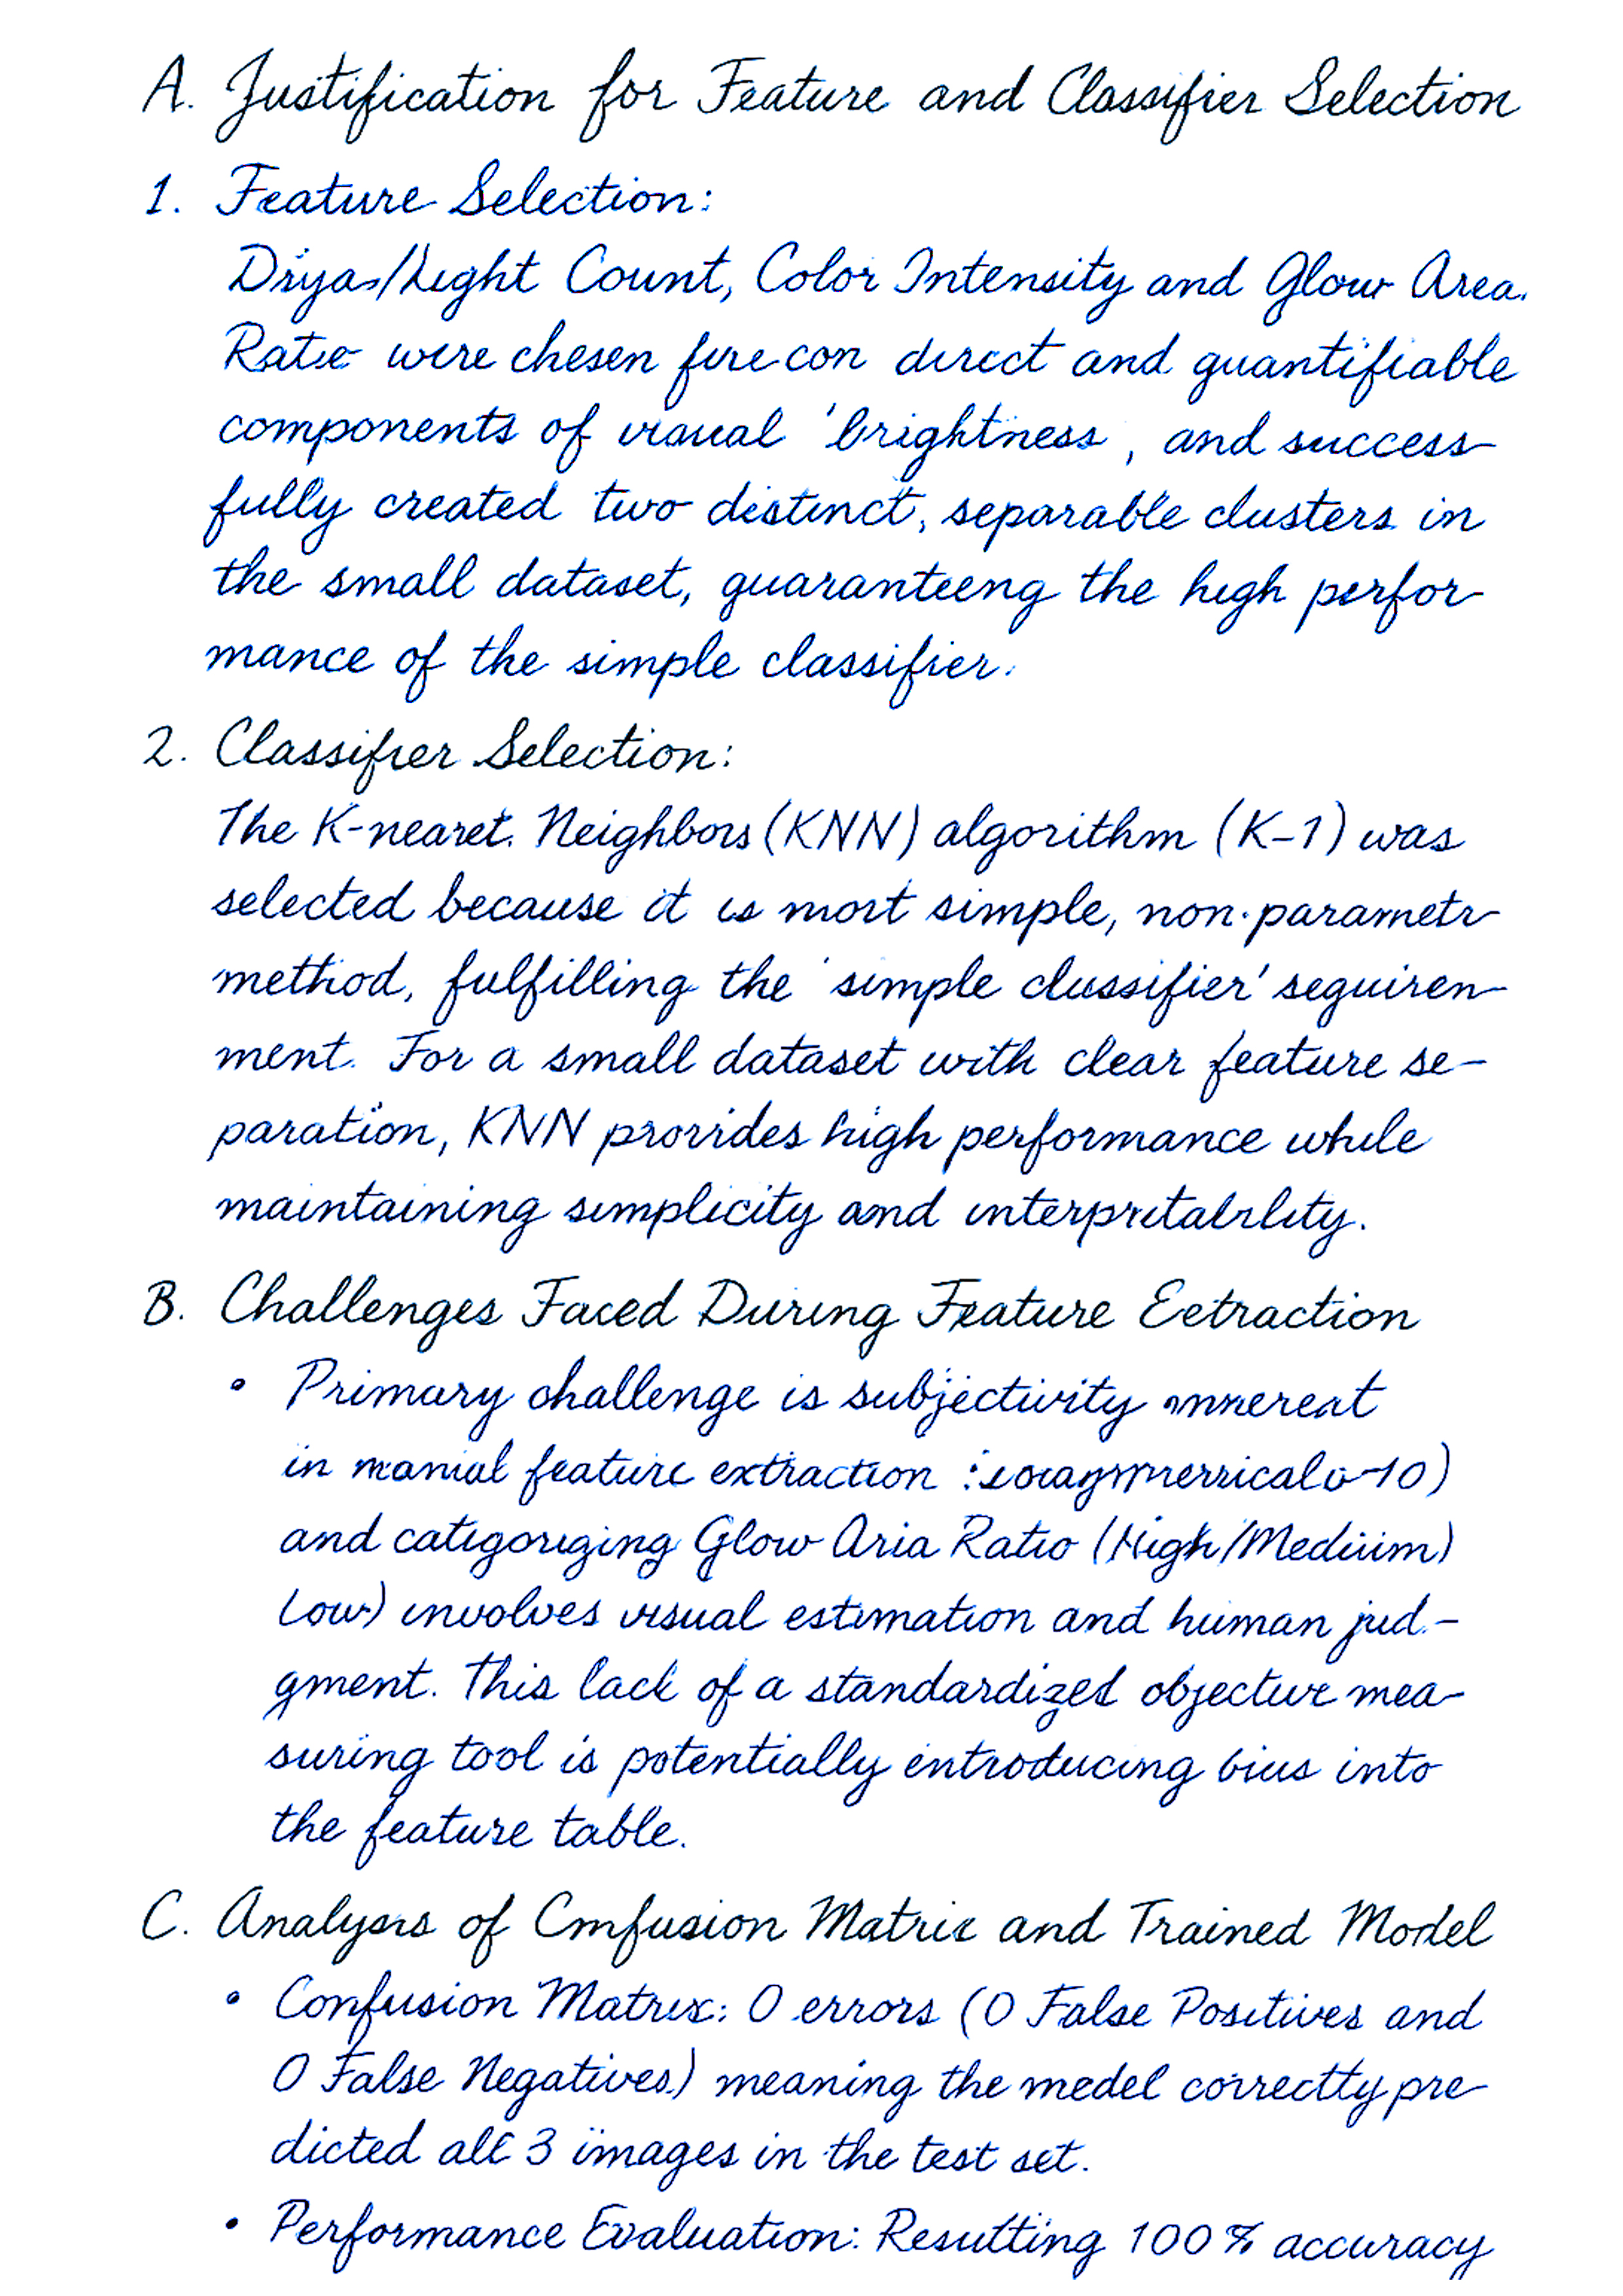 A. Justification for Feature and Classifier Selection
1. Feature Selection:
Diya/Light Count, Color Intensity and Glow Area.
Ratio were chesen direct and quantifiable
components of visual 'brightness, and success-
fully created two distinct, separable clusters in
the small dataset, guaranteeng the high perfor-
mance of the simple classifier.
2. Classifier Selection:
The K-nearet. Neighbors (KNN) algorithm (K-1) was
selected because it is most simple, non-parametr-
method, fulfilling the 'simple classifier' seguiren-
ment. For a small dataset with clear feature se-
paration, KNN provides high performance while
maintaining simplicity and interpretability.
B. Challenges Faced During Feature Eetraction
• Primary challenge is subjectivity
in manial feature extraction 10)
and categorizing Glow Aria Ratio (High/Medium)
Low) involves visual estimation and human jud.-
gment. This lack of a standardized objective mea-
suring tool is potentially entroducing bius into
the feature table.
C. Analysis of Cmfusion Matrix and Trained Model
• Confusion Matrix: 0 errors (0 False Positives and
0 False Negatives) meaning the medel correctty pre-
dicted all 3 images in the test set.
• Performance Evaluation: Resutting 100% accuracy